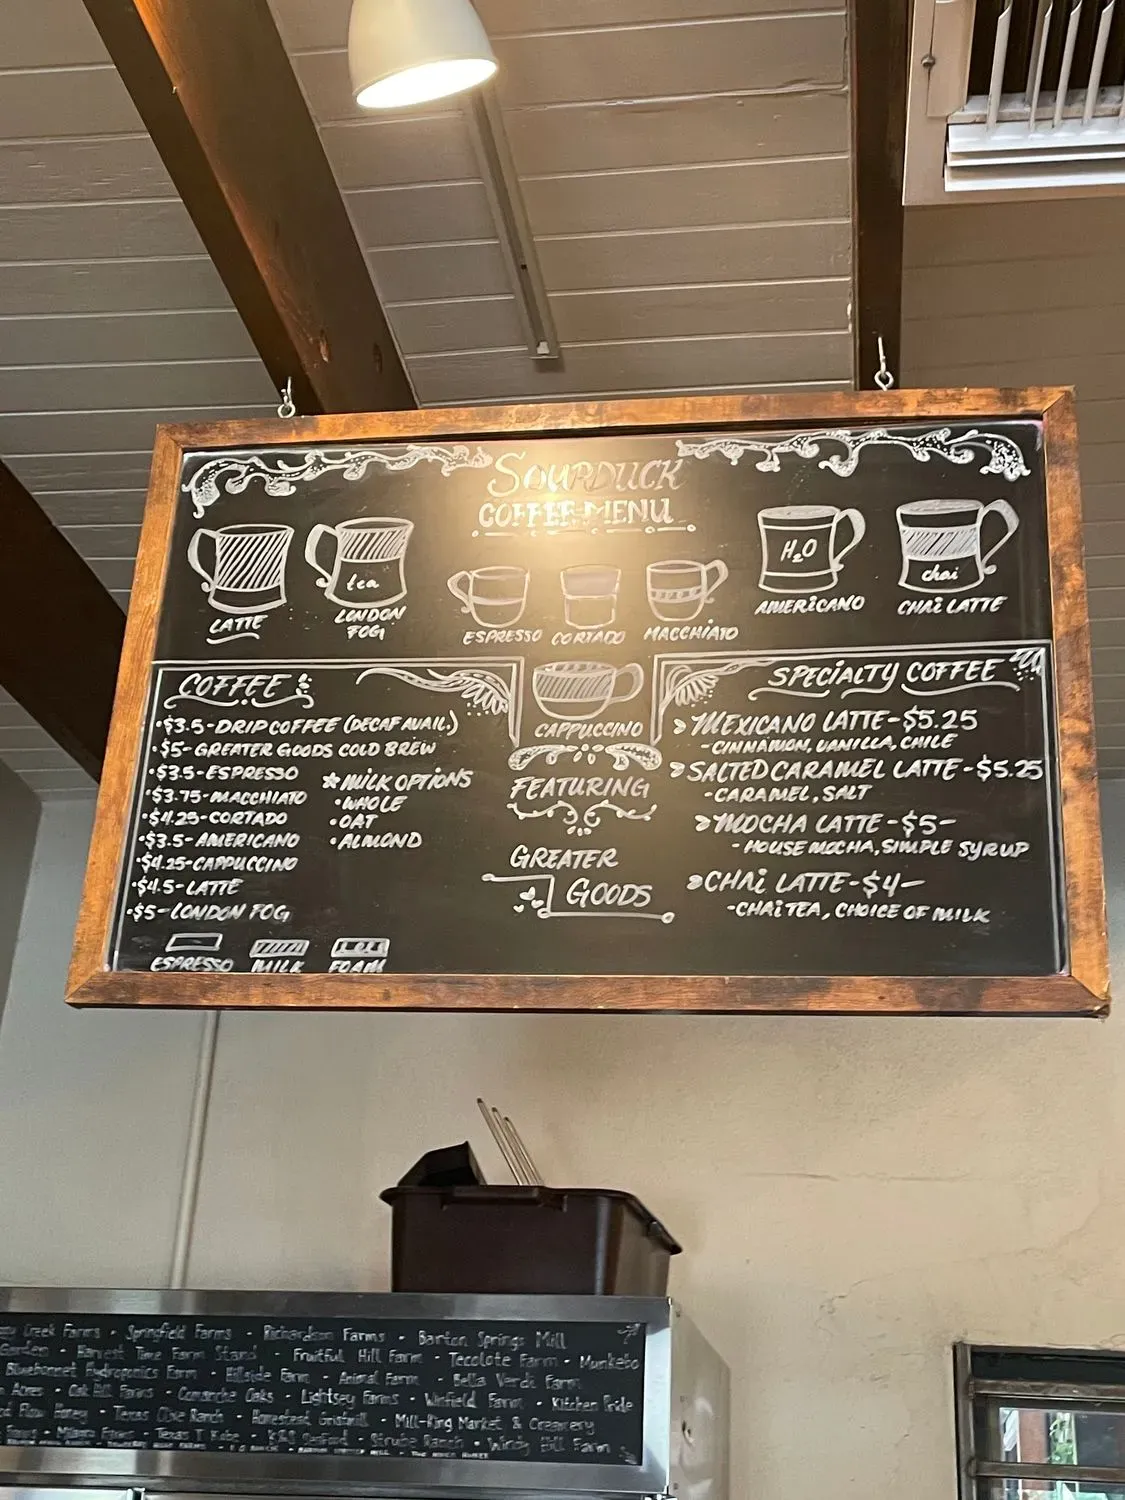 SOURDUCK
COFFEE MENU
LATTE
tea
LONDON
FOG
ESPRESSO
CORTADO
MACCHIATO
H2O
AMERICANO
chai
CHAI LATTE
CAPPUCCINO
COFFEE
•$3.5-DRIP COFFEE (DECAF AVAIL.)
•$5-GREATER GOODS COLD BREW
•$3.5-ESPRESSO
•$3.75-MACCHIATO
•$4.25-CORTADO
•$3.5-AMERICANO
•$4.25-CAPPUCCINO
•$4.5-LATTE
•$5-LONDON FOG
*MILK OPTIONS
•WHOLE
•OAT
•ALMOND
ESPRESSO MILK FOAM
FEATURING
GREATER
GOODS
SPECIALTY COFFEE
MEXICANO LATTE-$5.25
-CINNAMON, VANILLA, CHILE
SALTED CARAMEL LATTE-$5.25
-CARAMEL, SALT
MOCHA LATTE-$5-
-HOUSE MOCHA, SIMPLE SYRUP
CHAI LATTE-$4-
-CHAI TEA, CHOICE OF MILK
Creek Farms - Springfield Farms - Richardson Farms - Barton Springs Mill
Garden - Harvest Time Farm Stand - Fruitful Hill Farm - Tecolote Farm - Munkebo
Bluebonnet Hydroponics Farm - Hillside Farm - Animal Farm - Bella Verdi Farm
Acres - Oak Hill Farms - Comanche Oaks - Lightsey Farms - Winfield Farm - Kitchen Pride
Flow Honey - Texas Olive Ranch - Homestead Gristmill - Mill-King Market & Creamery
Farms - Texas T Kobe - K&S Seafood - Strube Ranch - Windy Hill Farm